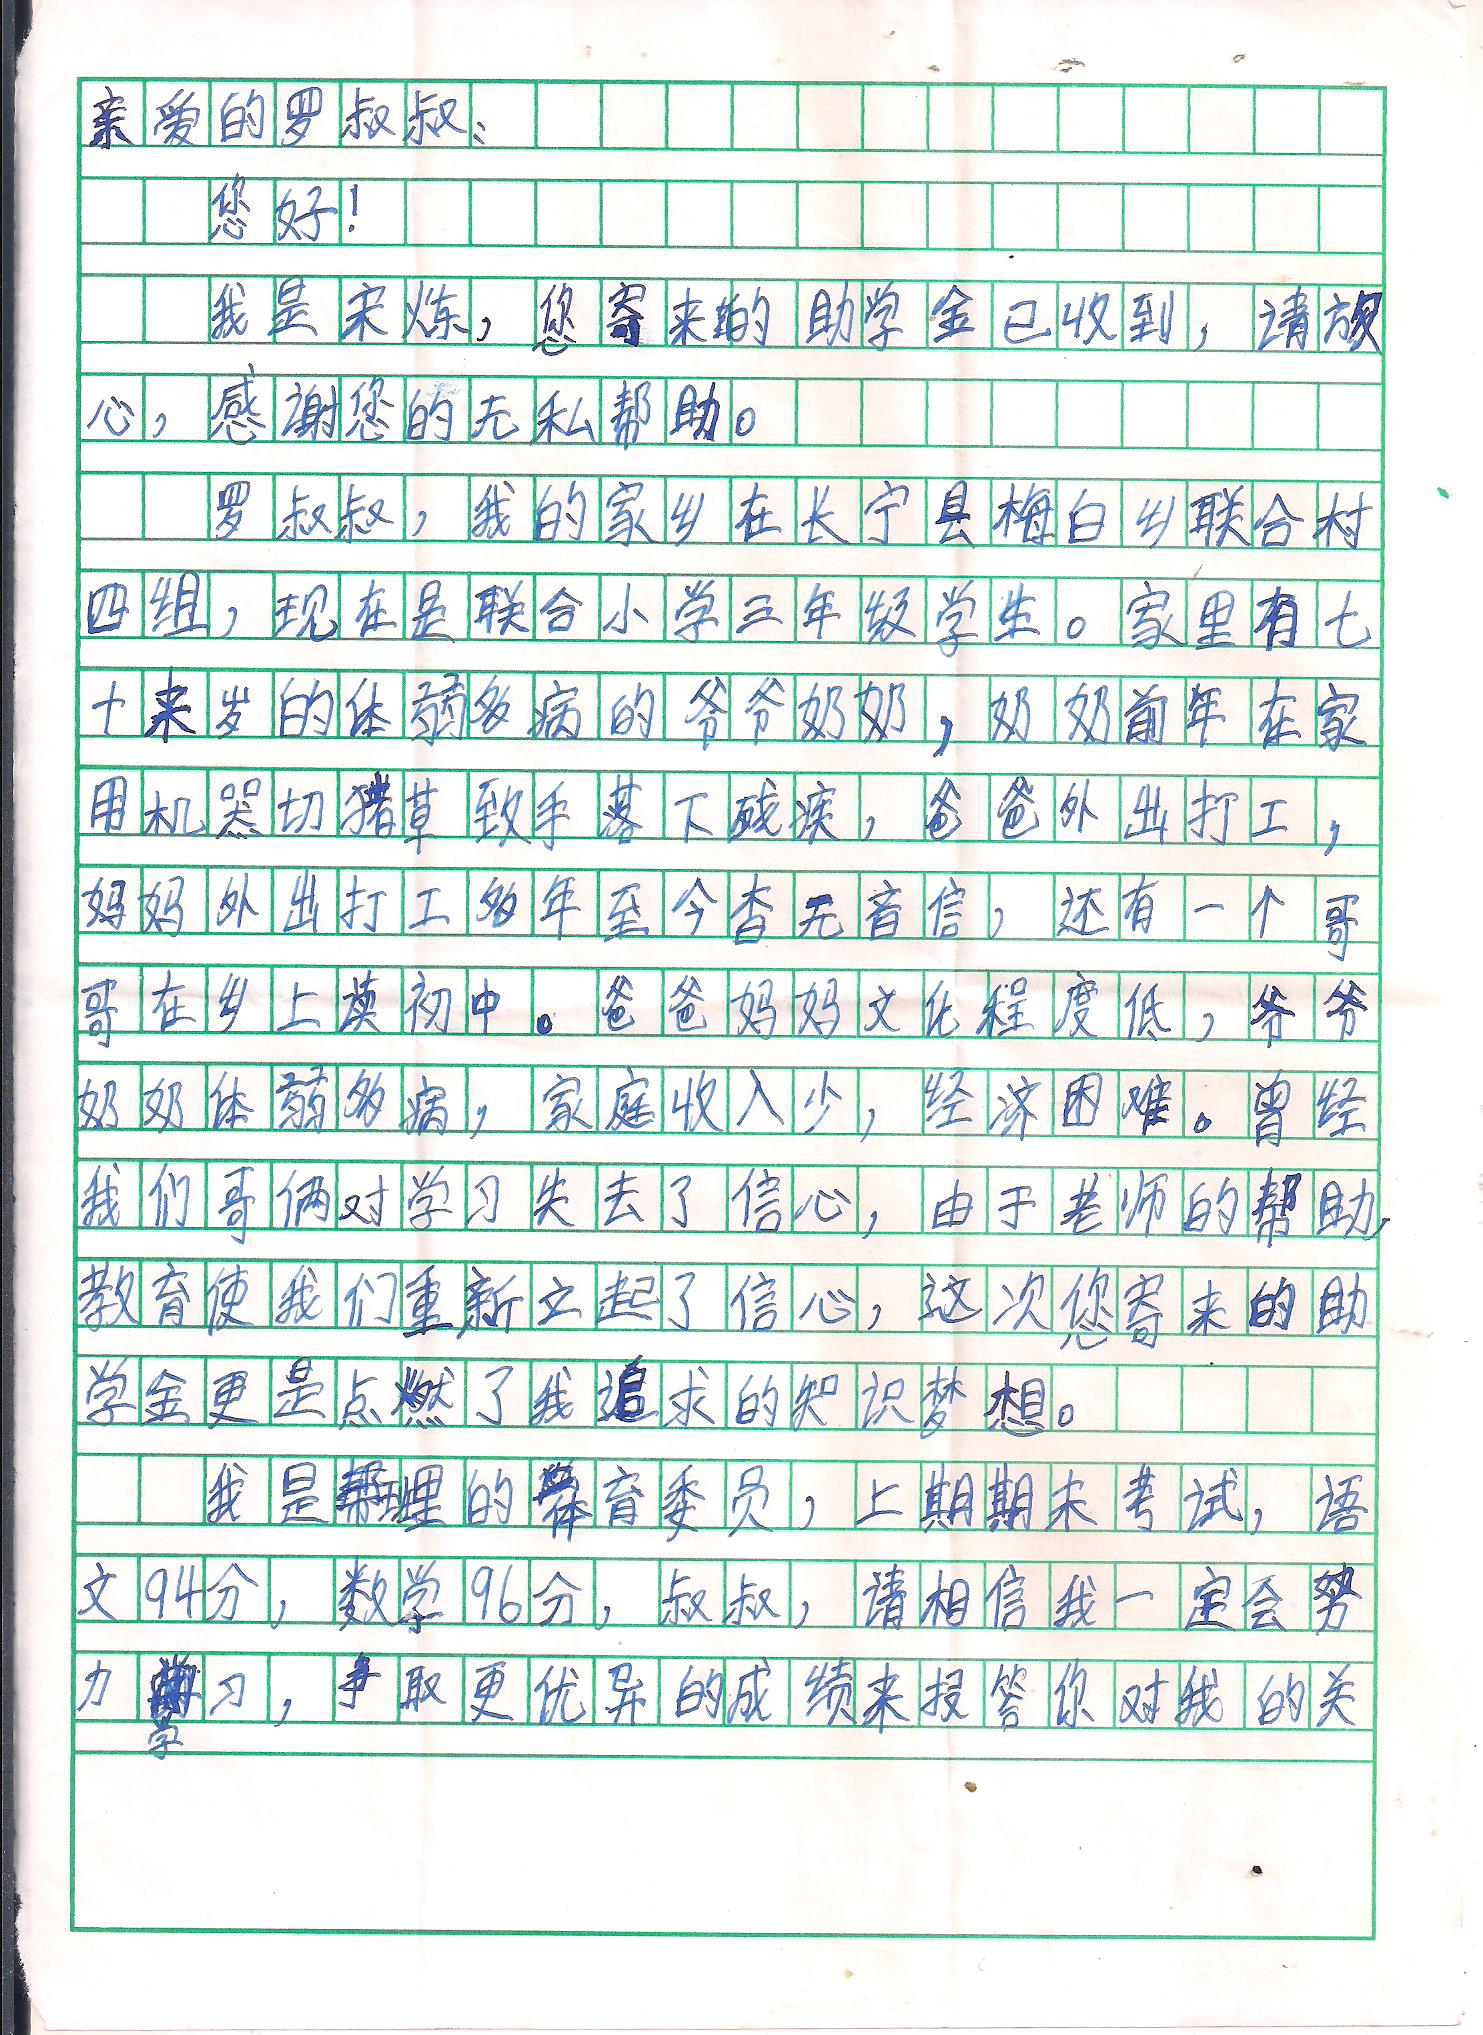 亲爱的罗叔叔:
您好!
我是宋炼,您寄来的助学金已收到,请放
心,感谢您的无私帮助。
罗叔叔,我的家乡在长宁县梅白乡联合村
四组,现在是联合小学三年级学生。家里有七
十来岁的体弱多病的爷爷奶奶,奶奶前年在家
用机器切猪草致手落下残疾,爸爸外出打工,
妈妈外出打工多年至今杳无音信,还有一个哥
哥在乡上读初中。爸爸妈妈文化程度低,爷爷
奶奶体弱多病,家庭收入少,经济困难。曾经
我们哥俩对学习失去了信心,由于老师的帮助,
教育使我们重新立起了信心,这次您寄来的助
学金更是点燃了我追求的知识梦想。
我是班里的体育委员,上期期末考试,语
文94分,数学96分,叔叔,请相信我一定会努
力学习,争取更优异的成绩来报答你对我的关